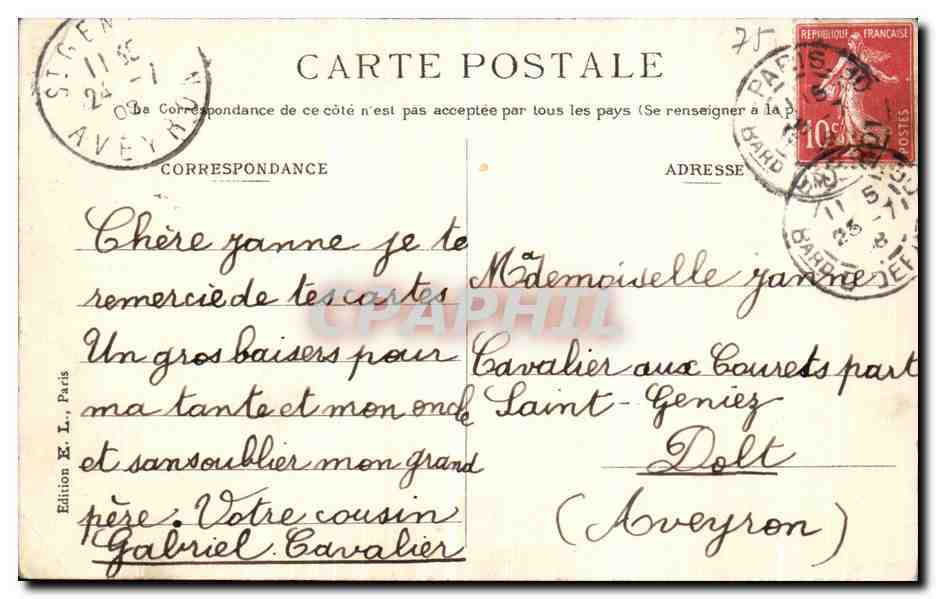 CARTE POSTALE
La Correspondance de ce côté n'est pas acceptée par tous les pays (Se renseigner à la p
CORRESPONDANCE
Chère yanne je te
remercie de tes cartes
Un gros baisers pour
ma tante et mon oncle
et sans oublier mon grand
père. Votre cousin
Gabriel Cavalier
ADRESSE
Mademoiselle yanne
Cavalier aux Courets part
Saint-Geniez
Dolt
(Aveyron)
Edition E. L., Paris
ST GEN
11 35
24 -1
09
AVEYRON
75
REPUBLIQUE FRANÇAISE
10c
POSTES
PARIS
BARD
11 5
23 -1
BARD
CPAPHIL